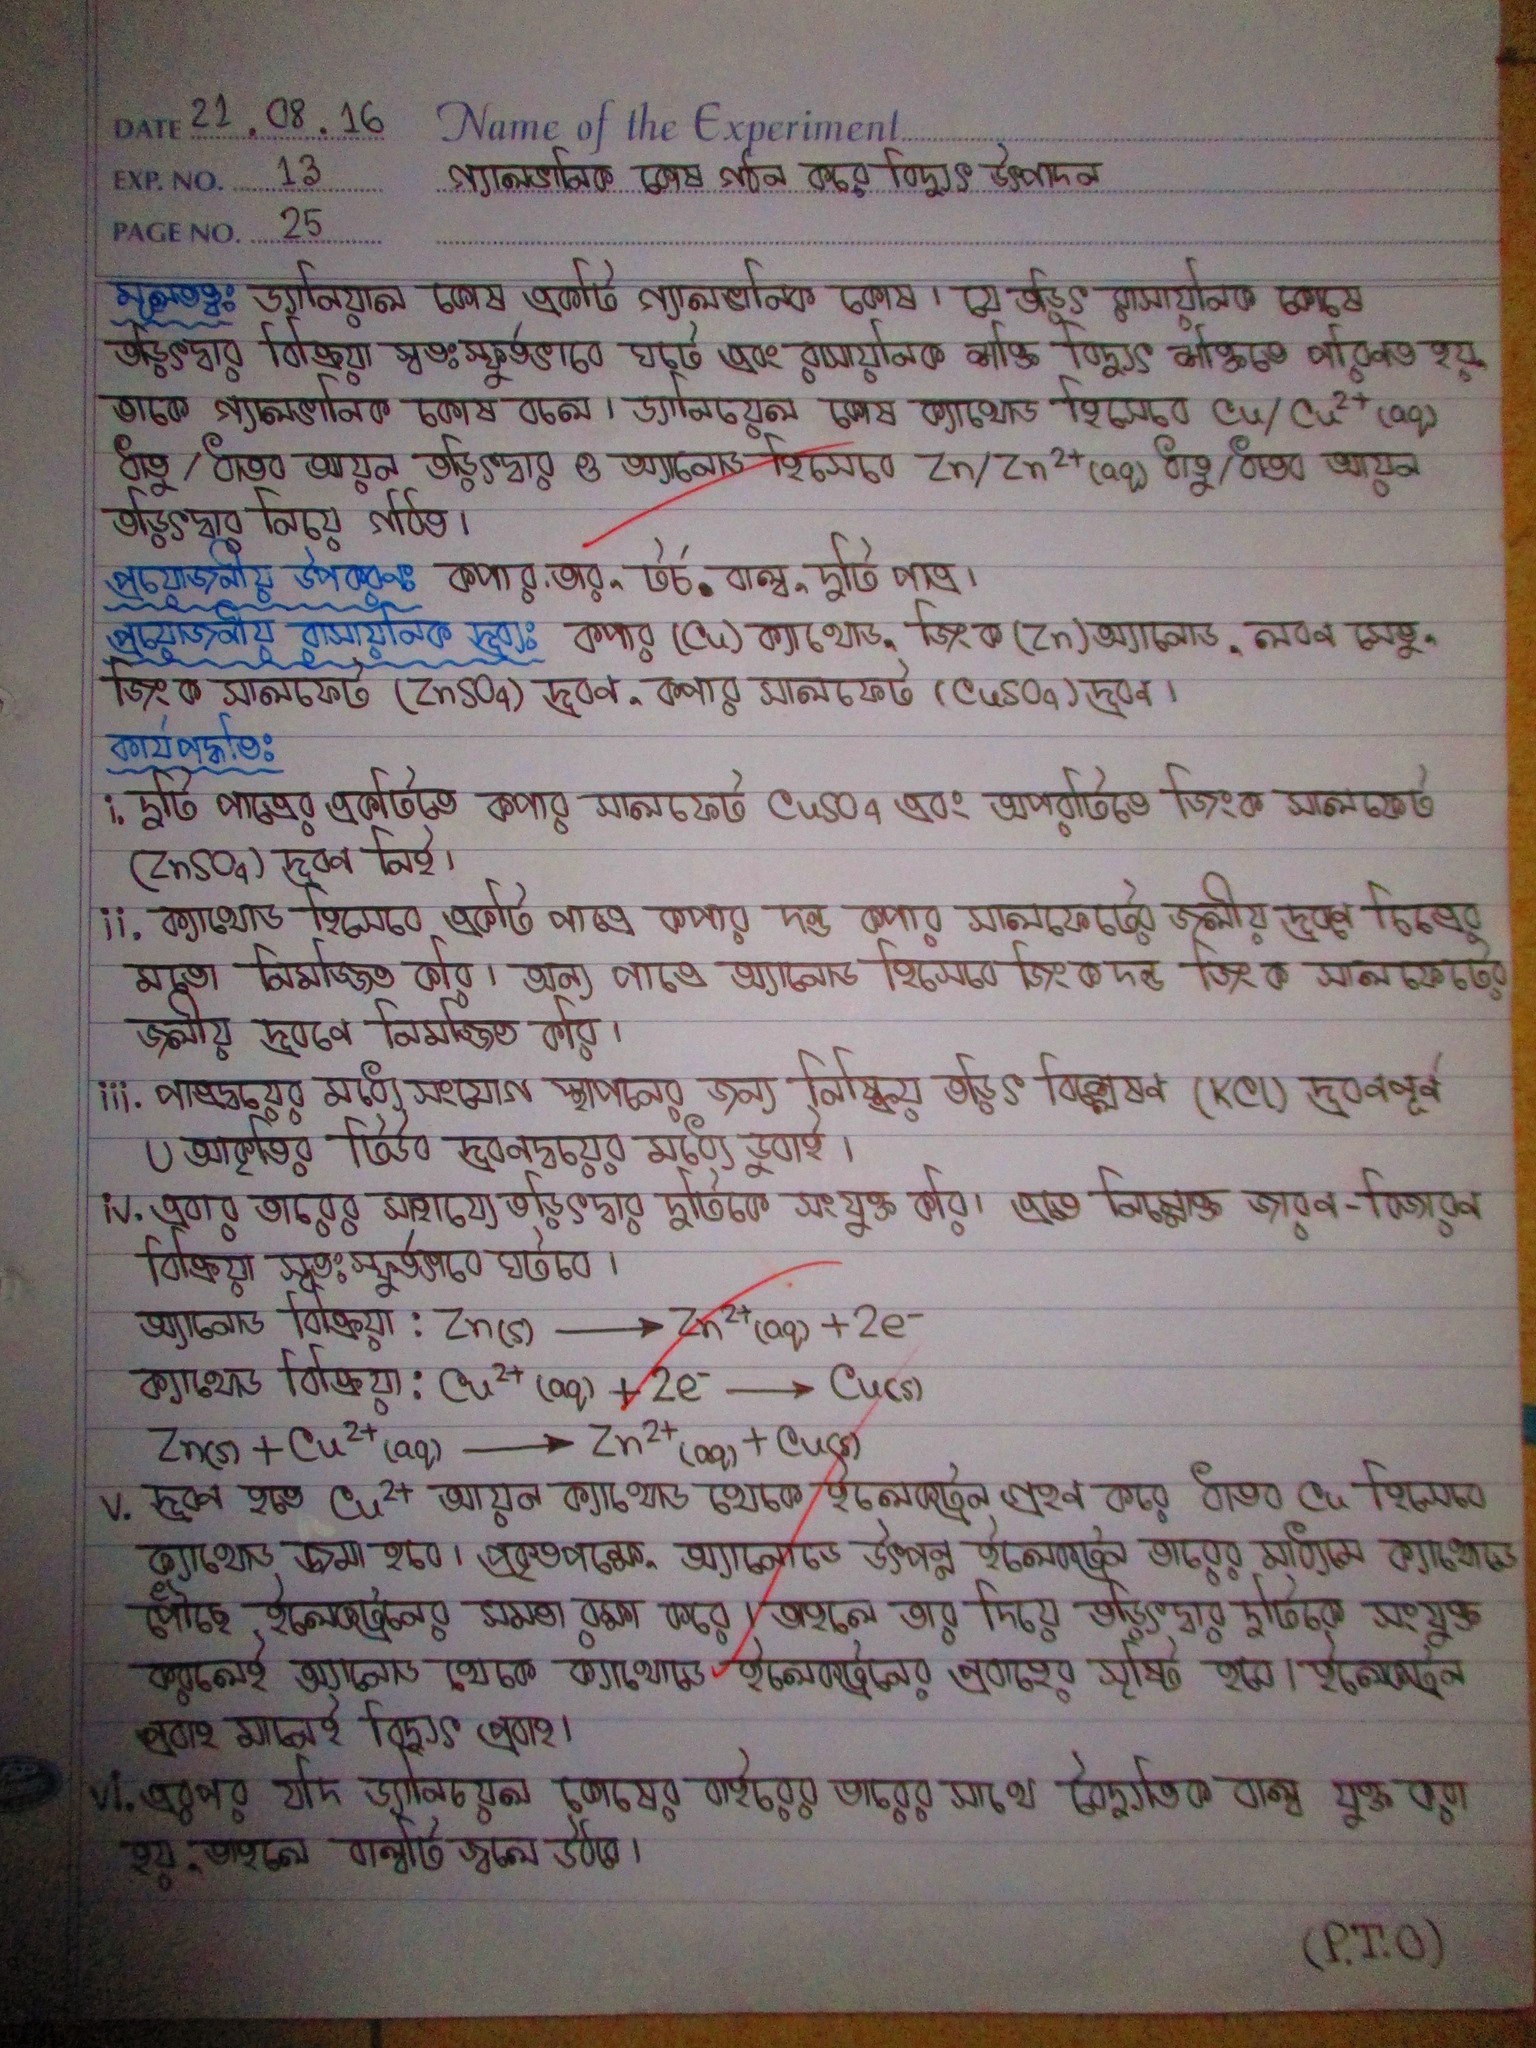 DATE 21.08.16 Name of the Experiment
EXP. NO. 13 গ্যালভানিক কোষ গঠন করে বিদ্যুৎ উৎপাদন
PAGE NO. 25
মূলতত্ত্বঃ ড্যানিয়াল কোষ একটি গ্যালভানিক কোষ। যে তড়িৎ রাসায়নিক কোষে
তড়িৎদ্বার বিক্রিয়া স্বতঃস্ফূর্তভাবে ঘটে এবং রাসায়নিক শক্তি বিদ্যুৎ শক্তিতে পরিণত হয়,
তাকে গ্যালভানিক কোষ বলে। ড্যানিয়েল কোষ ক্যাথোড হিসেবে Cu/Cu²⁺(aq)
ধাতু/ধাতব আয়ন তড়িৎদ্বার ও অ্যানোড হিসেবে Zn/Zn²⁺(aq) ধাতু/ধাতব আয়ন
তড়িৎদ্বার নিয়ে গঠিত।
প্রয়োজনীয় উপকরণঃ কপার তার, টর্চ, বাল্ব, দুটি পাত্র।
প্রয়োজনীয় রাসায়নিক দ্রব্যঃ কপার (Cu) ক্যাথোড, জিংক (Zn) অ্যানোড, লবন সেতু,
জিংক সালফেট (ZnSO₄) দ্রবণ, কপার সালফেট (CuSO₄) দ্রবন।
কার্যপদ্ধতিঃ
i. দুটি পাত্রের একটিতে কপার সালফেট CuSO₄ এবং অপরটিতে জিংক সালফেট
(ZnSO₄) দ্রবণ নিই।
ii. ক্যাথোড হিসেবে একটি পাত্রে কপার দন্ড কপার সালফেটের জলীয় দ্রবণে চিত্রের
মতো নিমজ্জিত করি। অন্য পাত্রে অ্যানোড হিসেবে জিংক দন্ড জিংক সালফেটের
জলীয় দ্রবণে নিমজ্জিত করি।
iii. পাত্রদ্বয়ের মধ্যে সংযোগ স্থাপনের জন্য নিষ্ক্রিয় তড়িৎ বিশ্লেষন (KCl) দ্রবনপূর্ন
U আকৃতির টিউব দ্রবনদ্বয়ের মধ্যে ডুবাই।
iv. এবার তারের সাহায্যে তড়িৎদ্বার দুটিকে সংযুক্ত করি। এতে নিম্নোক্ত জারন-বিজারন
বিক্রিয়া স্বতঃস্ফূর্তভাবে ঘটবে।
অ্যানোড বিক্রিয়া : Zn(s) → Zn²⁺(aq) + 2e⁻
ক্যাথোড বিক্রিয়া : Cu²⁺(aq) + 2e⁻ → Cu(s)
Zn(s) + Cu²⁺(aq) → Zn²⁺(aq) + Cu(s)
v. দ্রবণ হতে Cu²⁺ আয়ন ক্যাথোড থেকে ইলেকট্রন গ্রহন করে ধাতব Cu হিসেবে
ক্যাথোডে জমা হবে। প্রকৃতপক্ষে, অ্যানোডে উৎপন্ন ইলেকট্রন তারের মাধ্যমে ক্যাথোডে
পৌঁছে ইলেকট্রনের সমতা রক্ষা করে। তাহলে তার দিয়ে তড়িৎদ্বার দুটিকে সংযুক্ত
করলেই অ্যানোড থেকে ক্যাথোডে ইলেকট্রনের প্রবাহের সৃষ্টি হবে। ইলেকট্রন
প্রবাহ মানেই বিদ্যুৎ প্রবাহ।
vi. এরপর যদি ড্যানিয়েল কোষের বাইরের তারের সাথে বৈদ্যুতিক বাল্ব যুক্ত করা
হয়, তাহলে বাল্বটি জ্বলে উঠবে।
(P.T.O)